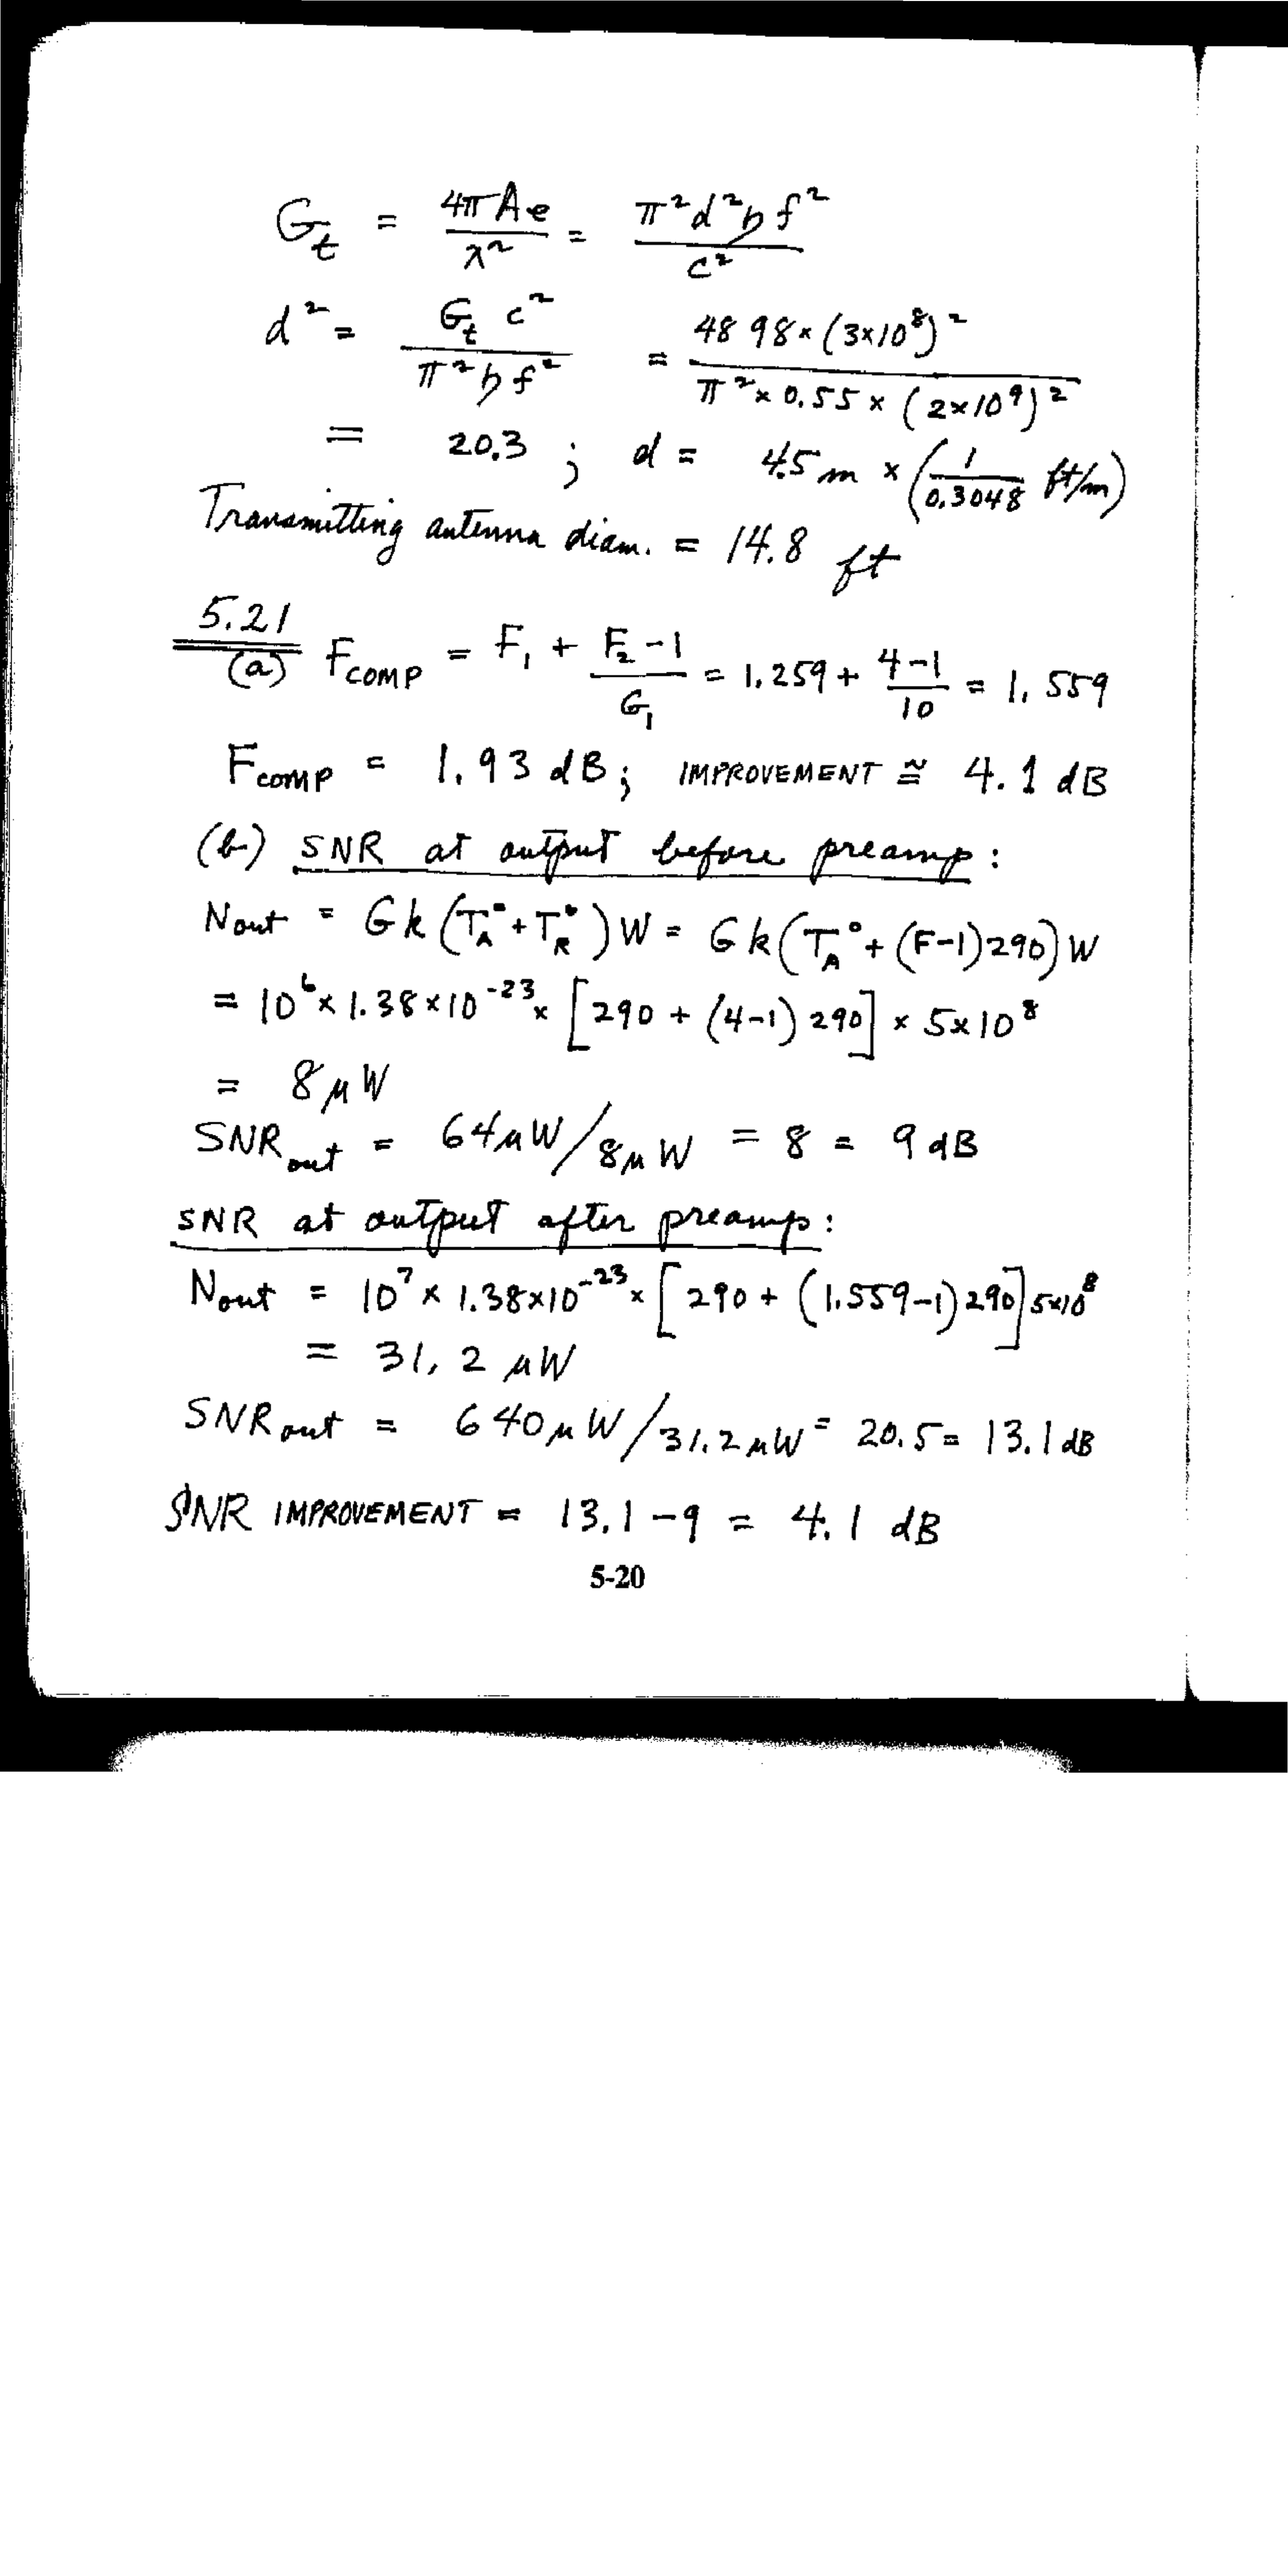 G_t = 4πAe/λ² = π²d²ηf²/c²
d² = G_t c²/π²ηf² = 4898×(3×10⁸)²/π²×0.55×(2×10⁹)²
= 20.3 ; d = 4.5 m × (1/0.3048 ft/m)
Transmitting antenna diam. = 14.8 ft
5.21
(a) F_COMP = F₁ + F₂-1/G₁ = 1.259 + 4-1/10 = 1.559
F_COMP = 1.93 dB; IMPROVEMENT ≅ 4.1 dB
(b) SNR at output before preamp:
Nout = Gk(T_A° + T_R°)W = Gk(T_A° + (F-1)290)W
= 10⁶ × 1.38×10⁻²³ × [290 + (4-1) 290] × 5×10⁸
= 8 μW
SNR_out = 64μW/8μW = 8 = 9 dB
SNR at output after preamp:
Nout = 10⁷ × 1.38×10⁻²³ × [290 + (1.559-1) 290] 5×10⁸
= 31.2 μW
SNR_out = 640μW/31.2μW = 20.5 = 13.1 dB
SNR IMPROVEMENT = 13.1 - 9 = 4.1 dB
5-20